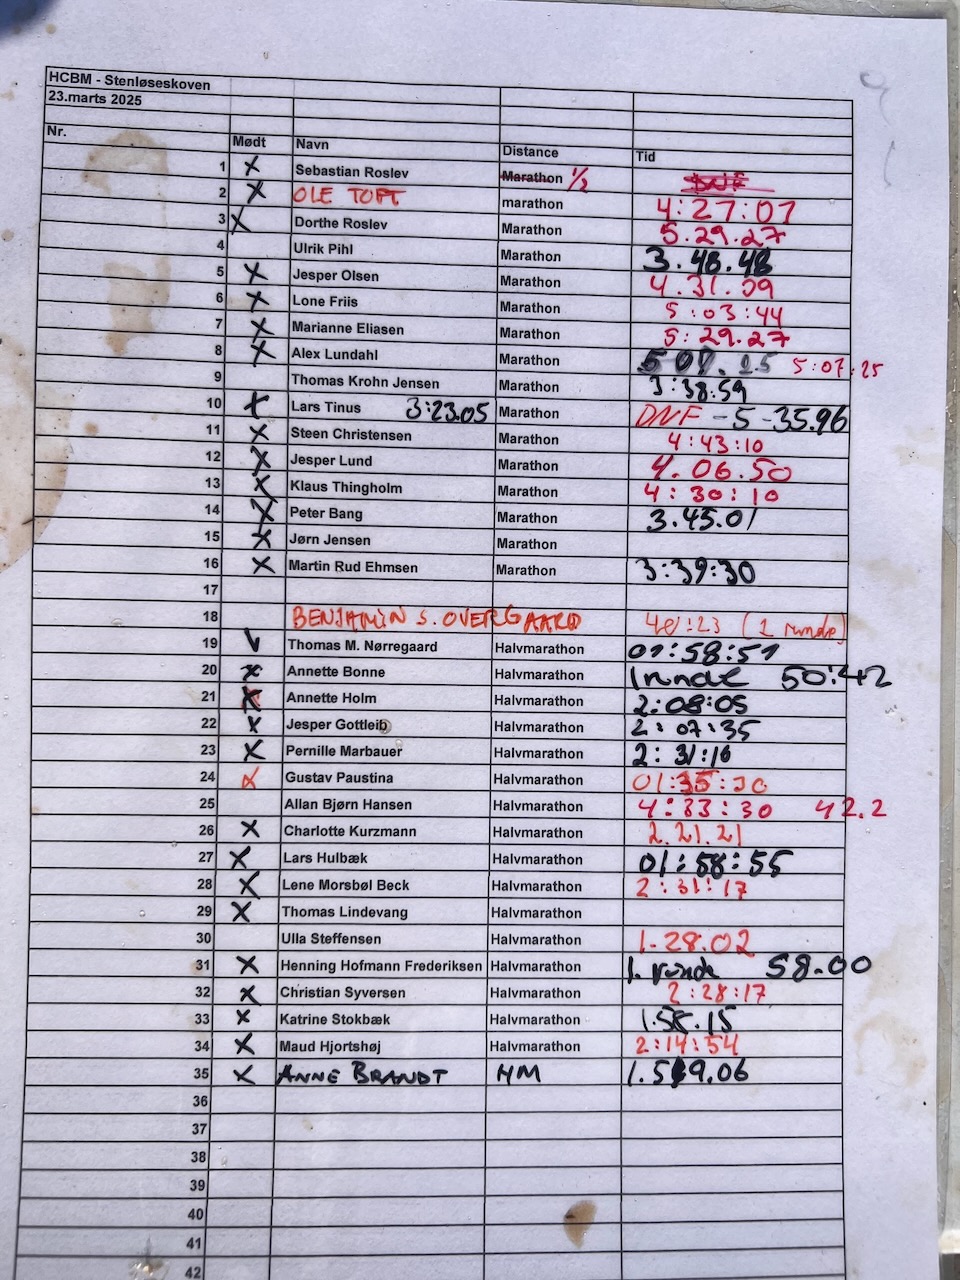 HCBM - Stenløseskoven
23.marts 2025
Nr. Mødt Navn Distance Tid
1 X Sebastian Roslev Marathon 1/2 DNF
2 X OLE TOFT marathon 4:27:07
3 X Dorthe Roslev Marathon 5.29.27
4 Ulrik Pihl Marathon 3.48.48
5 X Jesper Olsen Marathon 4.31.09
6 X Lone Friis Marathon 5:03:44
7 X Marianne Eliasen Marathon 5:29.27
8 X Alex Lundahl Marathon 5:07:25
9 Thomas Krohn Jensen Marathon 3:38.59
10 X Lars Tinus 3:23.05 Marathon DNF -5-35.96
11 X Steen Christensen Marathon 4:43:10
12 X Jesper Lund Marathon 4.06.50
13 X Klaus Thingholm Marathon 4:30:10
14 X Peter Bang Marathon 3.45.01
15 X Jørn Jensen Marathon
16 X Martin Rud Ehmsen Marathon 3:39:30
17
18 BENJAMIN S. OVERGAARD :23 (1 runde)
19 Thomas M. Nørregaard Halvmarathon 01:58:51
20 X Annette Bonne Halvmarathon 1 runde 50:42
21 X Annette Holm Halvmarathon 2:08:05
22 X Jesper Gottleib Halvmarathon 2:07:35
23 X Pernille Marbauer Halvmarathon 2:31:16
24 X Gustav Paustina Halvmarathon 01:35:30
25 Allan Bjørn Hansen Halvmarathon 4:33:30 42.2
26 X Charlotte Kurzmann Halvmarathon 2.21.21
27 X Lars Hulbæk Halvmarathon 01:58:55
28 X Lene Morsbøl Beck Halvmarathon 2:31:17
29 X Thomas Lindevang Halvmarathon
30 Ulla Steffensen Halvmarathon 1-28.02
31 X Henning Hofmann Frederiksen Halvmarathon 1. runde 58.00
32 X Christian Syversen Halvmarathon 2:28:17
33 X Katrine Stokbæk Halvmarathon 1.58.15
34 X Maud Hjortshøj Halvmarathon 2:14:54
35 X ANNE BRANDT HM 1.59.06
36
37
38
39
40
41
42